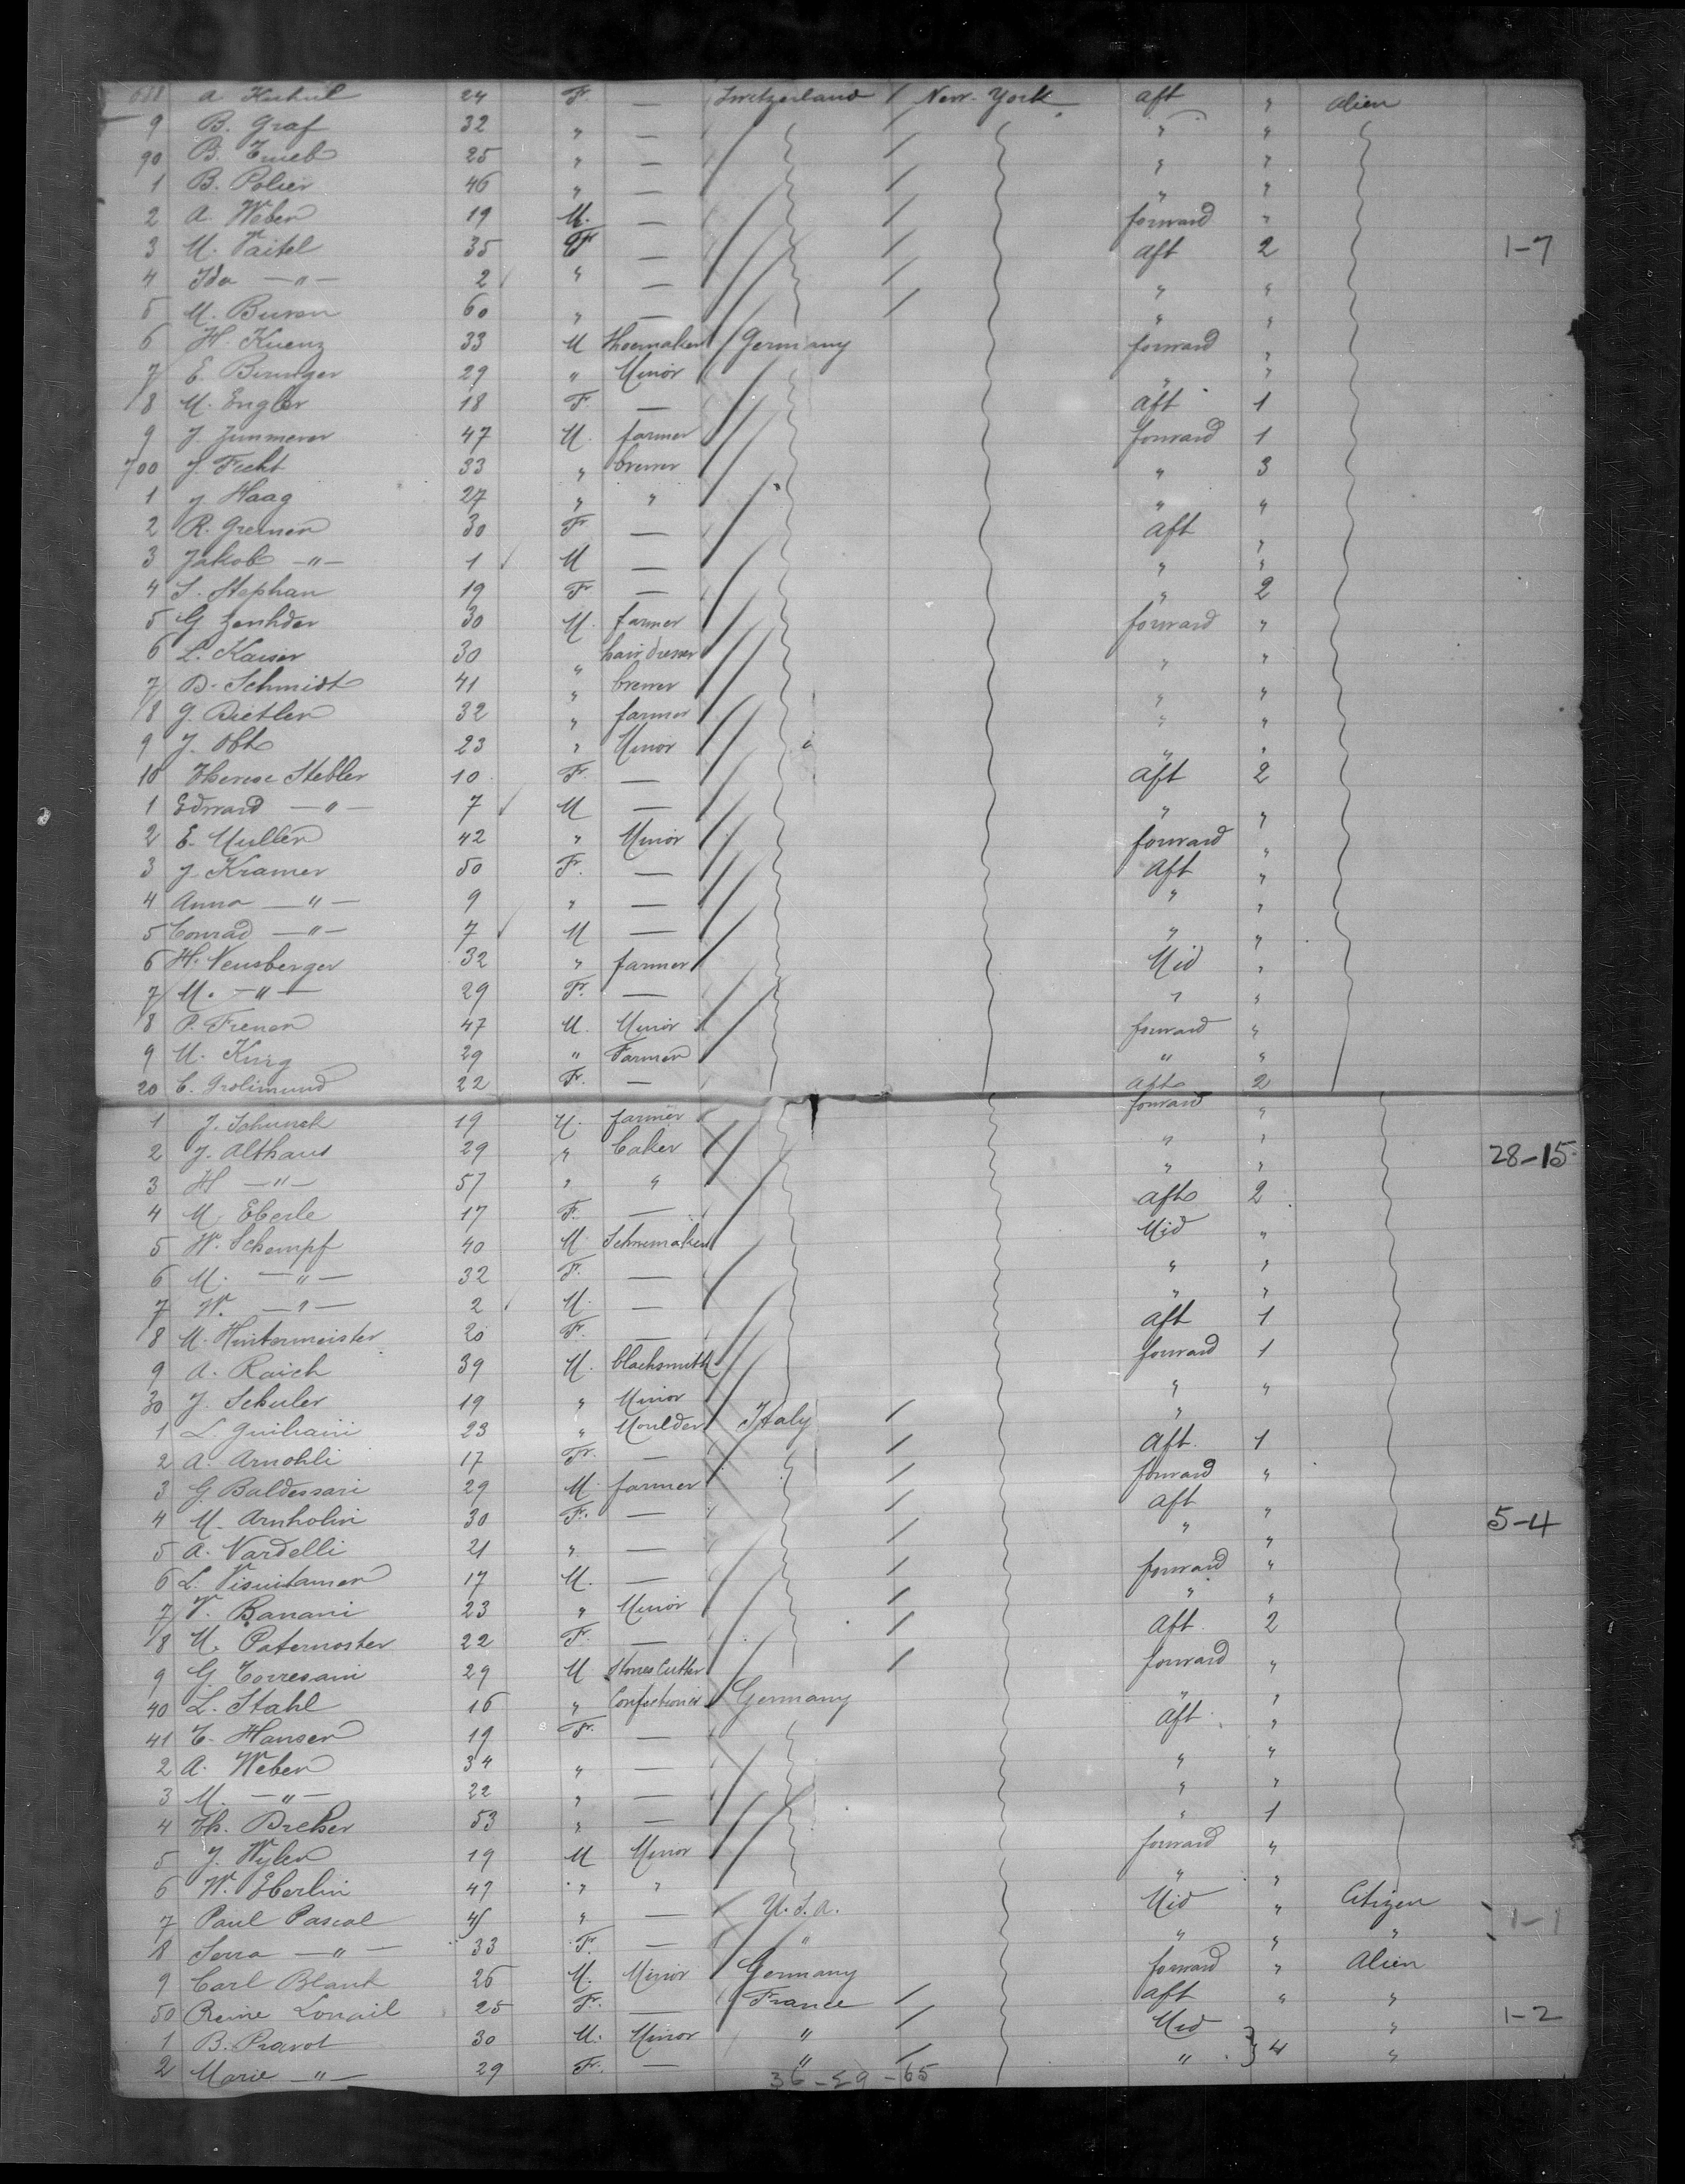 688 A. Kuhul 24 F. — Switzerland / New-York aft " Alien
9 B. Graf 32 " — " "
90 B. 25 " — " "
1 B. Polier 46 " — " "
2 A. Weber 19 M. — forward "
3 M. Vaitel 35 F — aft 2 1-7
4 Ida —"— 2 " — " "
5 M. Buren 60 " — " "
6 H. Kuenz 33 M Shoemaker Germany forward "
7 E. Beringer 29 " Minor " "
8 M. Engler 18 F. — aft 1
9 J. Jimmerer 47 M. farmer forward 1
700 J. Ficht 33 " brewer " 3
1 J. Haag 27 " " " "
2 R. Greiner 30 F. — aft "
3 Jakob —"— 1 M — " "
4 S. Stephan 19 F. — " 2
5 G. Zenhder 30 M. farmer forward "
6 L. Kaiser 30 " hair dresser " "
7 D. Schmidt 41 " brewer " "
8 G. Dietler 32 " farmer " "
9 J. Obt 23 " Minor " "
10 Therese Stebler 10 F. — aft 2
1 Edward —"— 7 M — " "
2 E. Muller 42 " Minor forward "
3 J. Kramer 50 F. — aft "
4 Anna —"— 9 " — " "
5 Conrad —"— 7 M — " "
6 H. Neusberger 32 " farmer Mid "
7 M. —"— 29 F. — " "
8 P. Frener 47 M. Minor forward "
9 M. King 29 " Farmer " "
20 C. Grolimund 22 F. — aft 2
1 J. Schunck 19 M. farmer forward "
2 J. Althaus 29 " baker " " 28-15
3 H —"— 57 " " " "
4 M. Eberle 17 F. — aft 2
5 W. Schempf 40 M Schoemaker Mid "
6 M. —"— 32 F. — " "
7 W. —"— 2 M. — " "
8 M. Hintermeister 20 F. — aft 1
9 A. Raich 39 M. blacksmith forward 1
30 J. Schuler 19 " Minor " "
1 L. Guiliani 23 " Moulder Italy "
2 A. Arnohli 17 F. — aft. 1
3 G. Baldessari 29 M. farmer forward "
4 M. Arnholin 30 F. — aft " 5-4
5 A. Nardelli 21 " — " "
6 L. Visuitamer 17 M. — forward "
7 V. Banani 23 " Minor " "
8 M. Paternoster 22 F. — aft. 2
9 G. Torresani 29 M Stones Cutter forward "
40 L. Stahl 16 " Confectioner Germany " "
41 E. Hanser 19 F. — aft. "
2 A. Weber 34 " — " "
3 M. —"— 22 " — " "
4 Th. Dreher 53 " — " 1
5 J. Wyler 19 M Minor forward "
6 W. Eberlin 47 " " " "
7 Paul Pascal 45 " — U.S.A. Mid " Citizen 1-1
8 Serra —"— 33 F. — " " " "
9 Carl Blank 26 M. Minor Germany forward " Alien
50 Reine Louail 25 F. — France aft " " 1-2
1 B. Pravot 30 M. Minor " Mid } 4 "
2 Marie —"— 29 F. — " " "
36-29-65